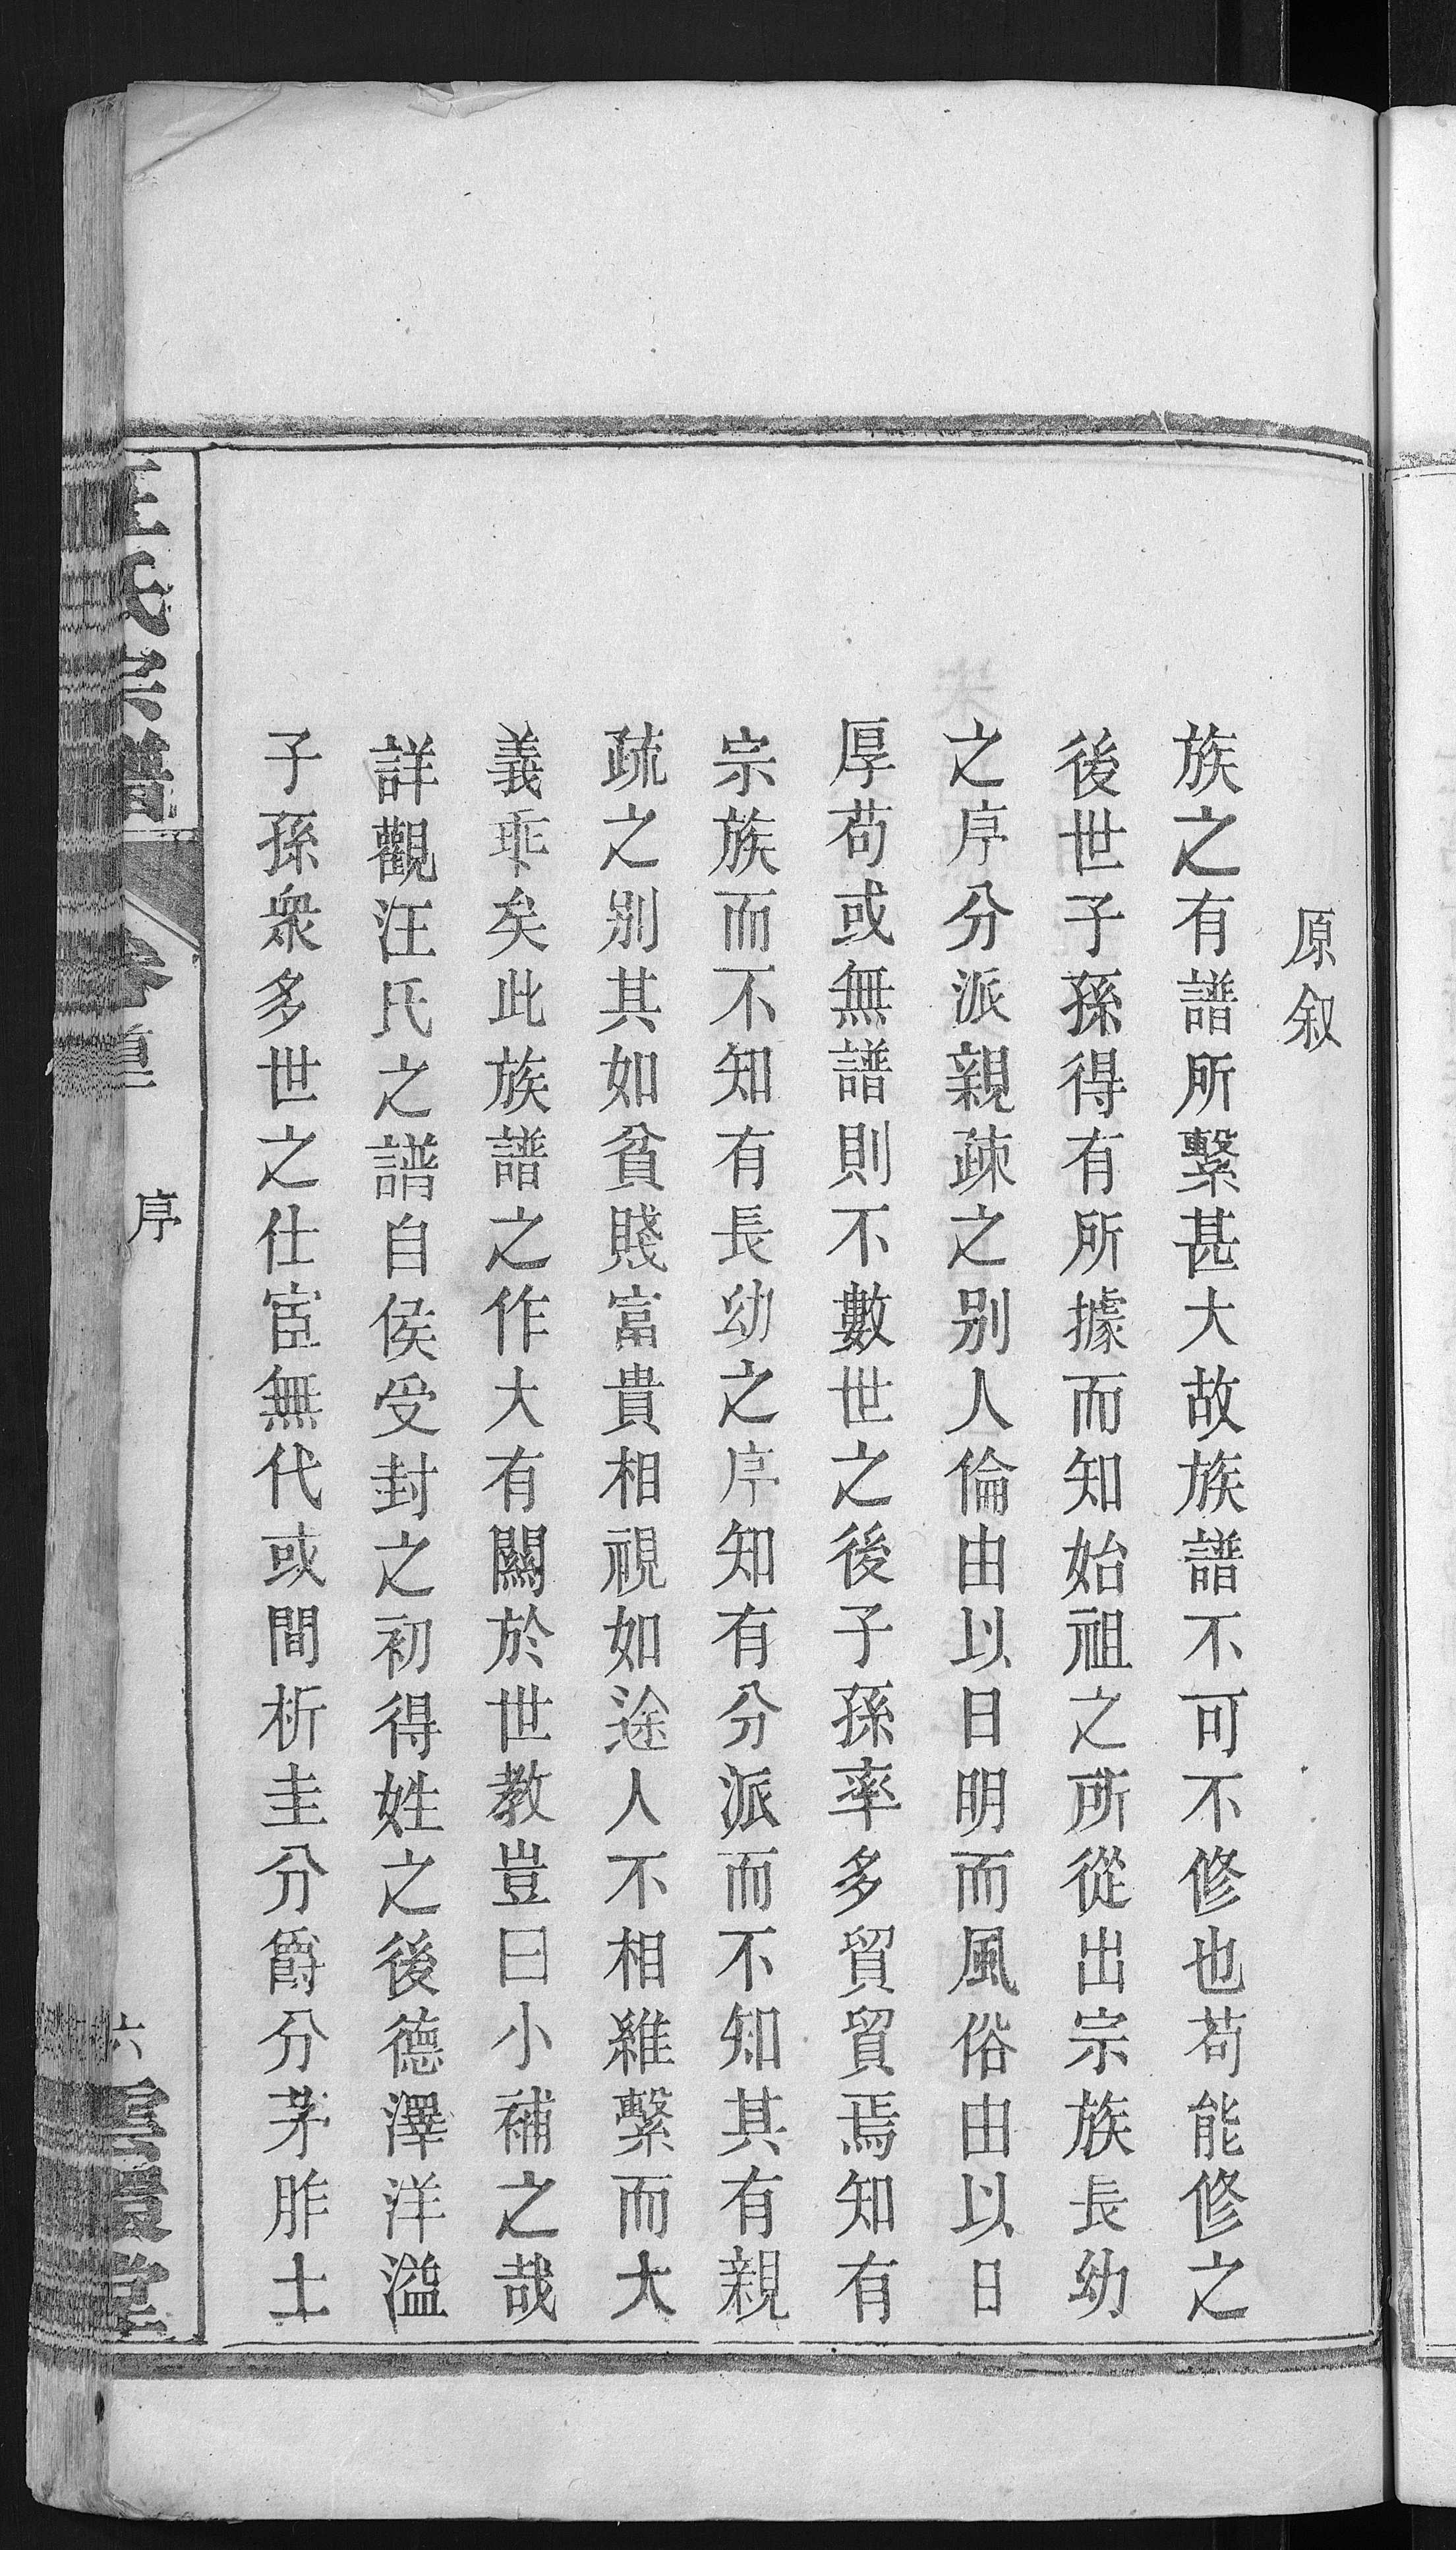 原叙
族之有譜所繫甚大故族譜不可不修也苟能修之
後世子孫得有所據而知始祖之所從出宗族長幼
之序分派親疎之别人倫由以日明而風俗由以日
厚苟或無譜則不數世之後子孫率多貿貿焉知有
宗族而不知有長幼之序知有分派而不知其有親
疏之别其如貧賤富貴相視如途人不相維繫而大
義乖矣此族譜之作大有關於世教豈曰小補之哉
詳觀汪氏之譜自侯受封之初得姓之後德澤洋溢
子孫衆多世之仕宦無代或間析圭分爵分茅胙土
汪氏宗譜
卷首
序
六
堂